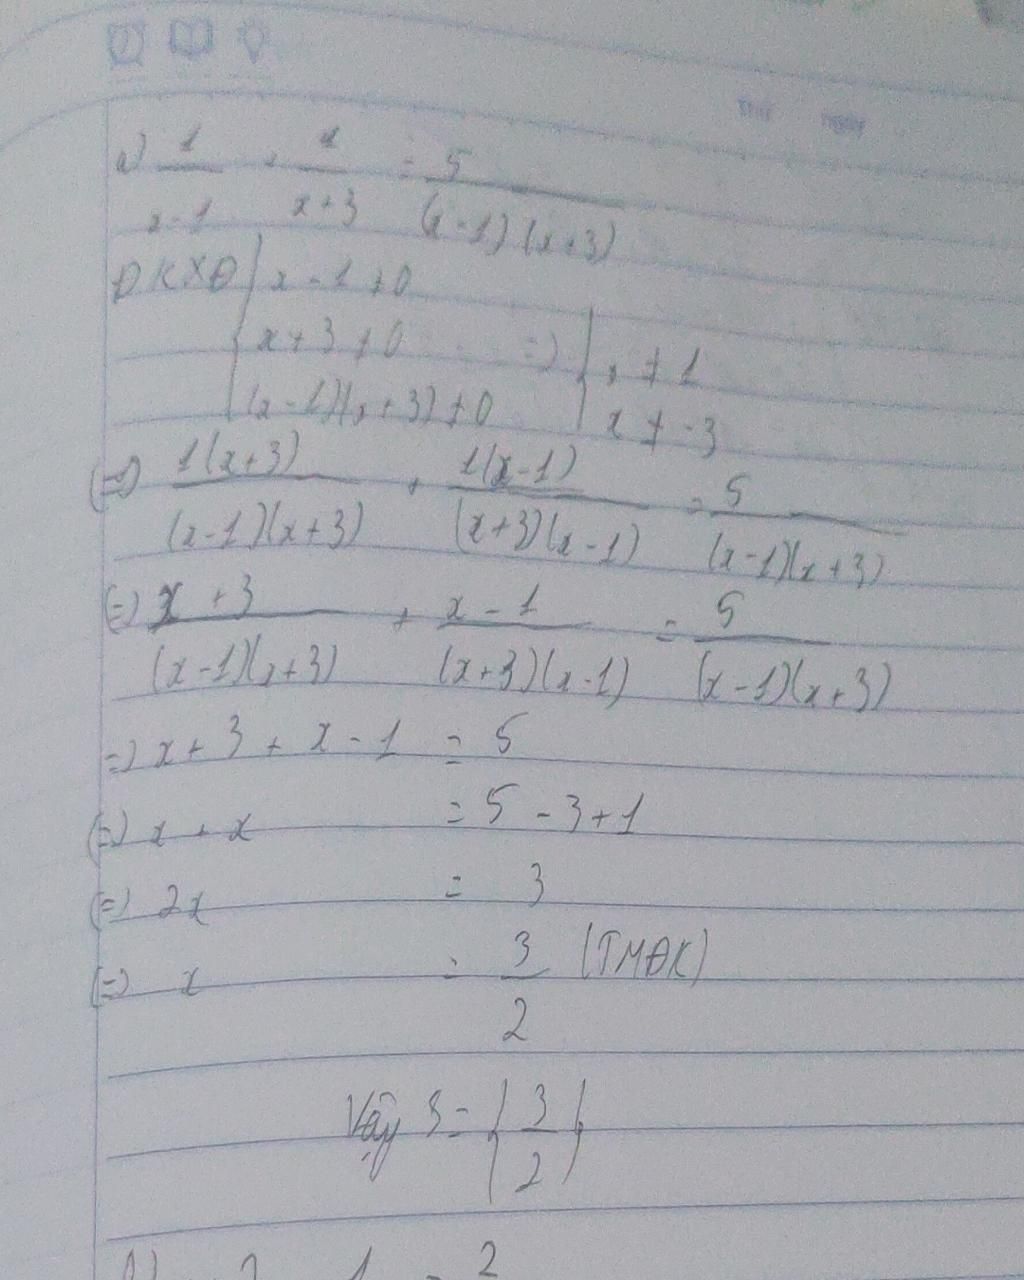 Thứ ngày
a) 1/(x-1) + 1/(x+3) = 5/((x-1)(x+3))
ĐKXĐ { x-1≠0
x+3≠0 => { x≠1
(x-1)(x+3)≠0 x≠-3
(=) 1(x+3)/((x-1)(x+3)) + 1(x-1)/((x+3)(x-1)) = 5/((x-1)(x+3))
(=) x+3/((x-1)(x+3)) + x-1/((x+3)(x-1)) = 5/((x-1)(x+3))
=) x+3+x-1 = 5
(=) x+x = 5-3+1
(=) 2x = 3
(=) x = 3/2 (TMĐK)
Vậy S={3/2}